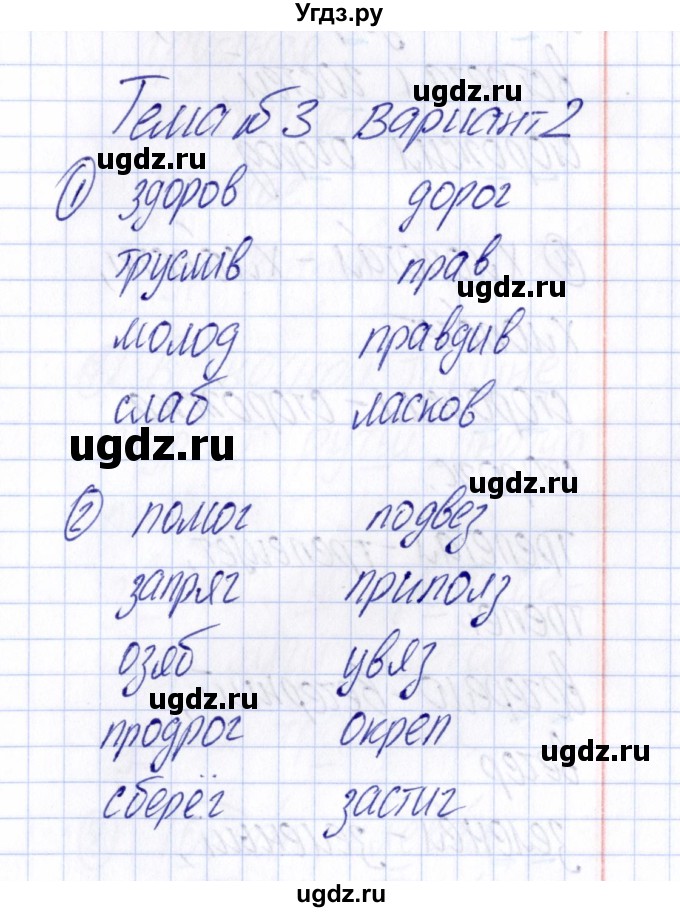 Угдз.ру
ugdz.ru
Тема № 3 вариант 2
ugdz.ru
① здоров дорог
труслив прав
ugdz.ru
молод правдив
слаб ласков
ugdz.ru
ugdz.ru
② помог подвез
запряг приполз
озяб увяз
ugdz.ru
продрог окреп
ugdz.ru
сберёг застиг
ugdz.ru